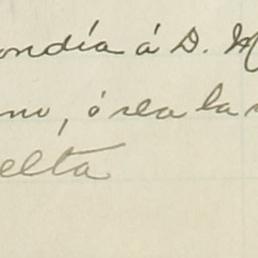 ondía á D. M
no, ó sea la
elta